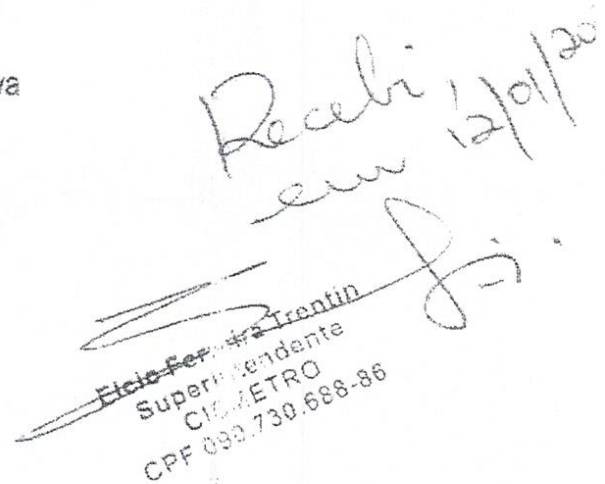 va
Recebi
em 12/01/20
Elcio Ferreira Trentin
Superintendente
CPF 093.730.688-86